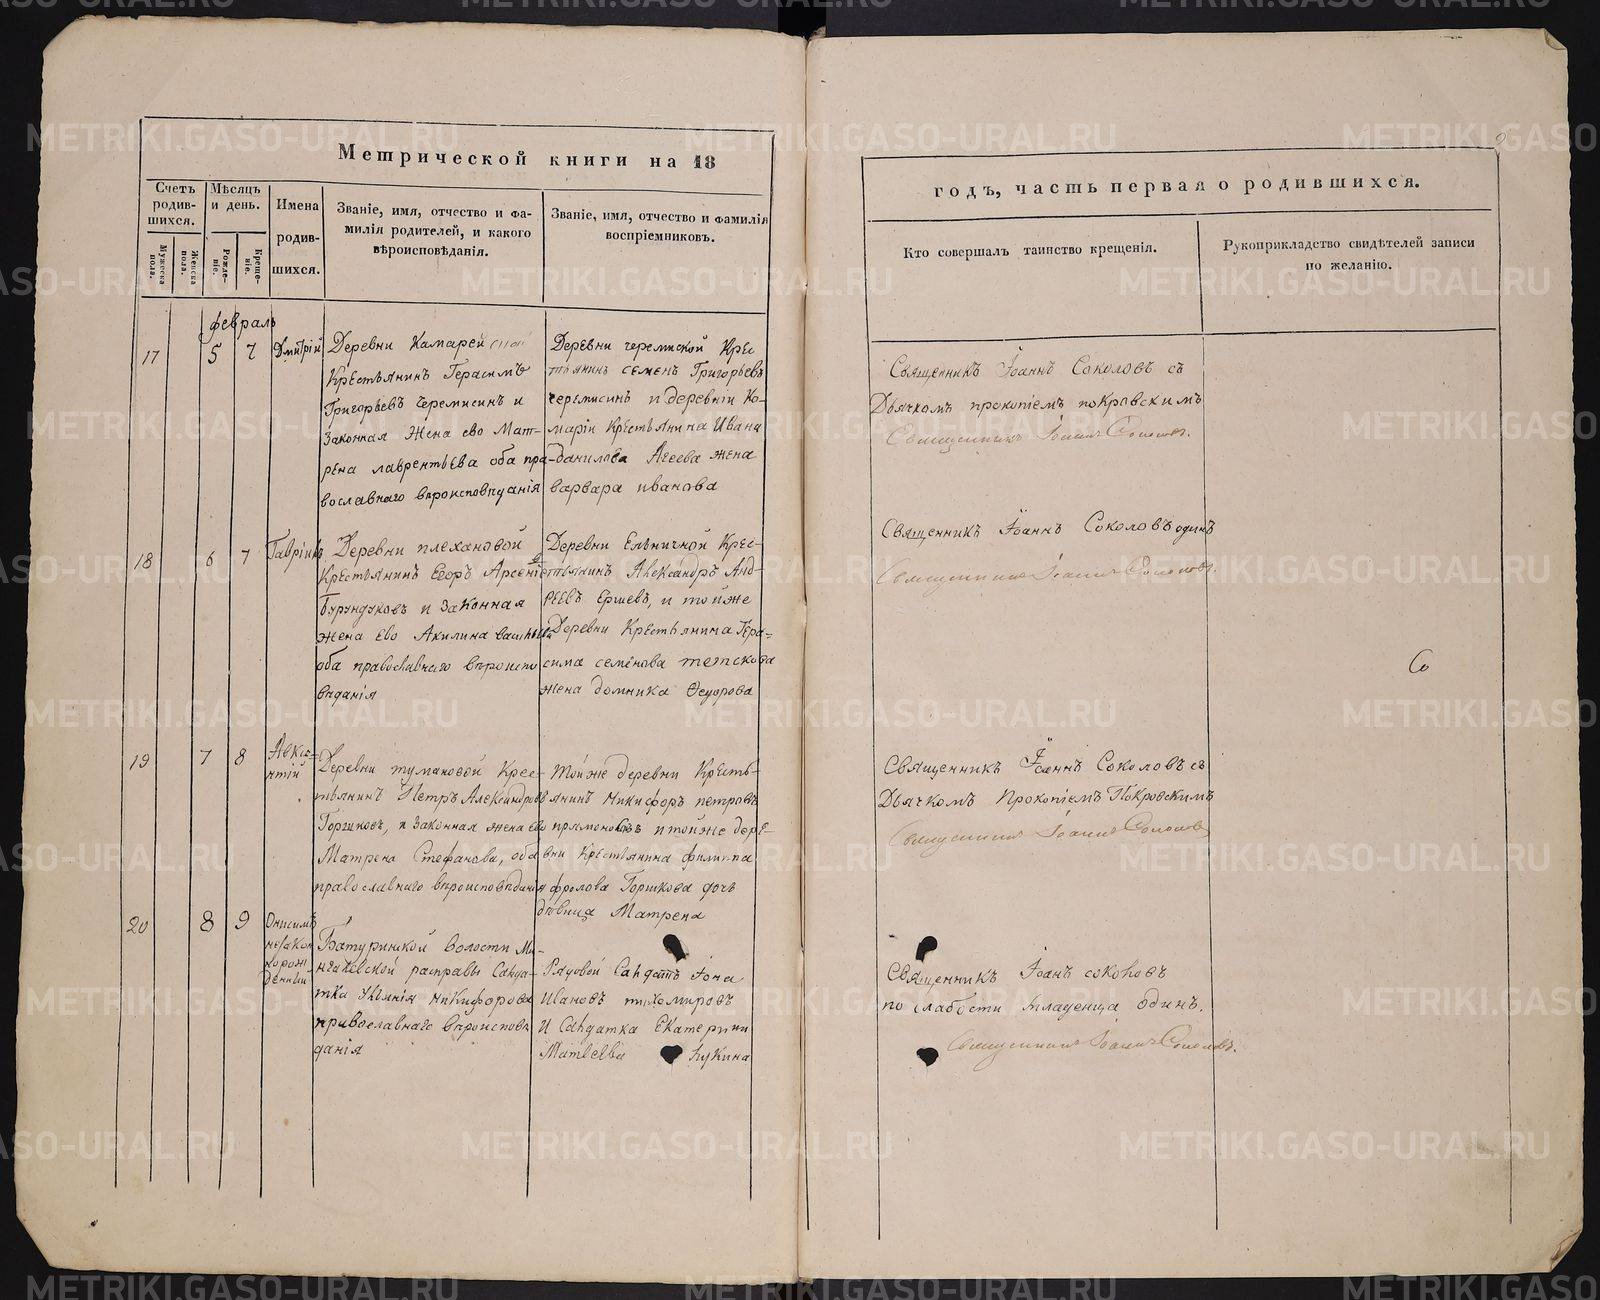 Метрической книги на 18
Счетъ родив-шихся.
Мужеска пола.
Женска пола.
Мѣсяцъ и день.
Рожде-ніе.
Креще-ніе.
Имена родив-шихся.
Званіе, имя, отчество и фа-
милія родителей, и какого
вѣроисповѣданія.
Званіе, имя, отчество и фамилія
воспріемниковъ.
февраль
17 5 7 Дмитрій
Деревни Камарей
Крестьянинъ Герасимъ
Григорьевъ Черемисинъ и
Законная жена ево Мат-
рена лаврентьева оба пра-
вославнаго вѣроисповѣданія
Деревни черемиской Крес
тьянинъ семенъ Григорьевъ
черемисинъ и деревни Ко-
маріи Крестьянина Ивана
данилова Агеева жена
варвара иванова
18 6 7 Гавріилъ
Деревни плехановой
Крестьянинъ Егоръ Арсеніевъ
Бурундуковъ и Законная
жена Ево Акилина
оба православнаго вѣроиспо
вѣданія
Деревни Ельничной Крес-
тьянинъ Александръ Анд-
реевъ Ершевъ, и тойже
Деревни Крестьянина Гера-
сима семёнова
жена домника Ѳедорова
19 7 8 Авксе-
нтій
Деревни тумановой Крес-
тьянинъ Петръ Александровъ
Горшковъ, и законная жена ево
Матрена Стефанова, оба
православнаго вѣроисповѣданія
Тойже деревни Кресть-
янинъ никифоръ петровъ
и тойже дере-
вни Крестьянина филипа
фролова Горшкова дочь
дѣвица Матрена
20 8 9 Онисимъ
незакон
норож
денный
Батуринской волости
расправы Салда-
тка никифорова
православнаго вѣроисповѣ
данія
Рядовой Салдатъ Іона
Ивановъ тихомировъ
И Салдатка Екатерина
Матвеева Кукина
годъ, часть первая о родившихся.
Кто совершалъ таинство крещенія.
Рукоприкладство свидѣтелей записи
по желанію.
Священникъ Іоаннъ Соколовъ съ
Дьячкомъ прокопіемъ покровскимъ
Священникъ Іоаннъ Соколовъ.
Священникъ Іоаннъ Соколовъ одинъ
Священникъ Іоаннъ Соколовъ.
Со
Священникъ Іоаннъ Соколовъ съ
Дьячкомъ Прокопіемъ Покровскимъ
Священникъ Іоаннъ Соколовъ
Священникъ Іоанъ соколовъ
по слабости младенца одинъ.
Священникъ Іоаннъ Соколовъ.
METRIKI.GASO-URAL.RU